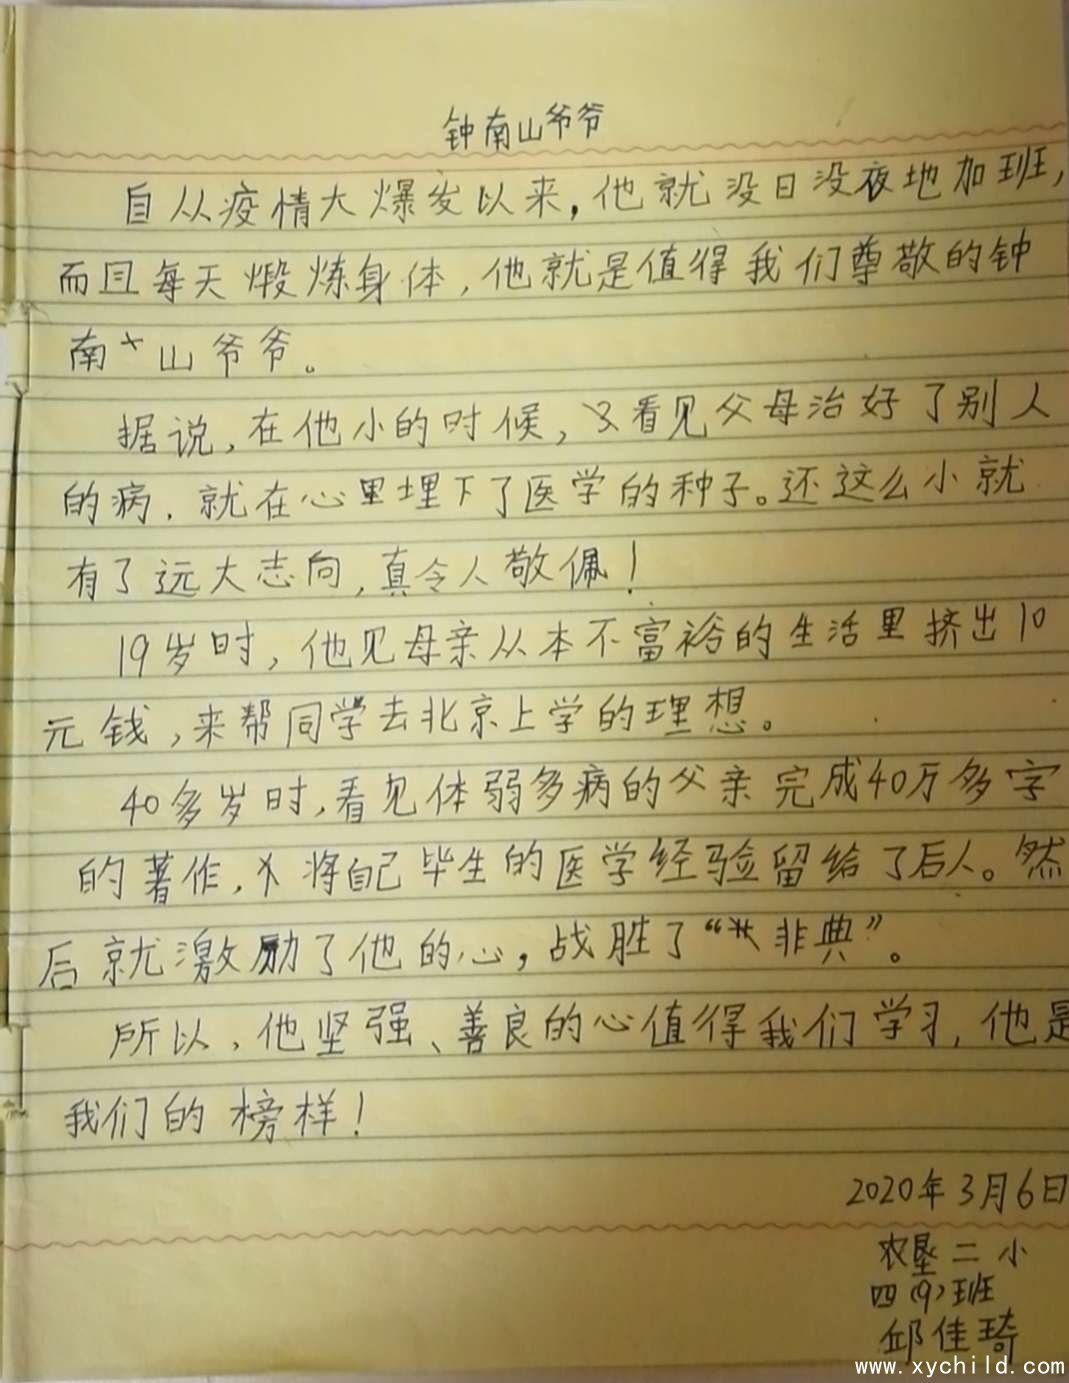 钟南山爷爷
自从疫情大爆发以来，他就没日没夜地加班，
而且每天煅炼身体，他就是值得我们尊敬的钟
南山爷爷。
据说，在他小的时候，看见父母治好了别人
的病，就在心里埋下了医学的种子。还这么小就
有了远大志向，真令人敬佩！
19岁时，他见母亲从本不富裕的生活里挤出10
元钱，来帮同学去北京上学的理想。
40多岁时，看见体弱多病的父亲完成40万多字
的著作，将自己毕生的医学经验留给了后人。然
后就激励了他的心，战胜了“非典”。
所以，他坚强、善良的心值得我们学习，他是
我们的榜样！
2020年3月6日
农垦二小
四(9)班
邱佳琦
www.xychild.com